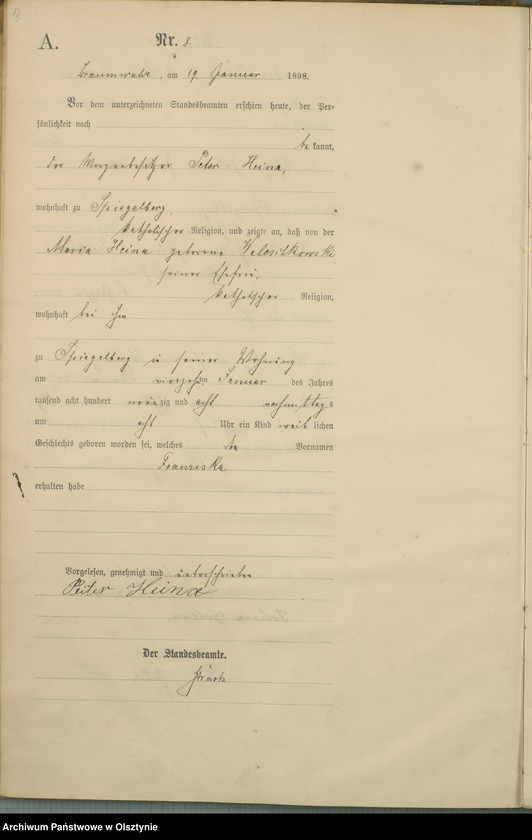 A.
Nr. 8.
Braunswalde, am 19. Januar 1898.
Vor dem unterzeichneten Standesbeamten erschien heute, der Per-
sönlichkeit nach
be kannt,
der Peter Heina,
wohnhaft zu Spiegelberg,
katholischer Religion, und zeigte an, daß von der
Maria Heina geborene
seiner Ehefrau,
katholischer Religion,
wohnhaft bei ihm
zu Spiegelberg in seiner Wohnung
am vierzehnten Januar des Jahres
tausend acht hundert neunzig und acht nachmittags
um acht Uhr ein Kind weib lichen
Geschlechts geboren worden sei, welches den Vornamen
Franziska
erhalten habe
Vorgelesen, genehmigt und unterschrieben
Peiter Heina
Der Standesbeamte.
Archiwum Państwowe w Olsztynie